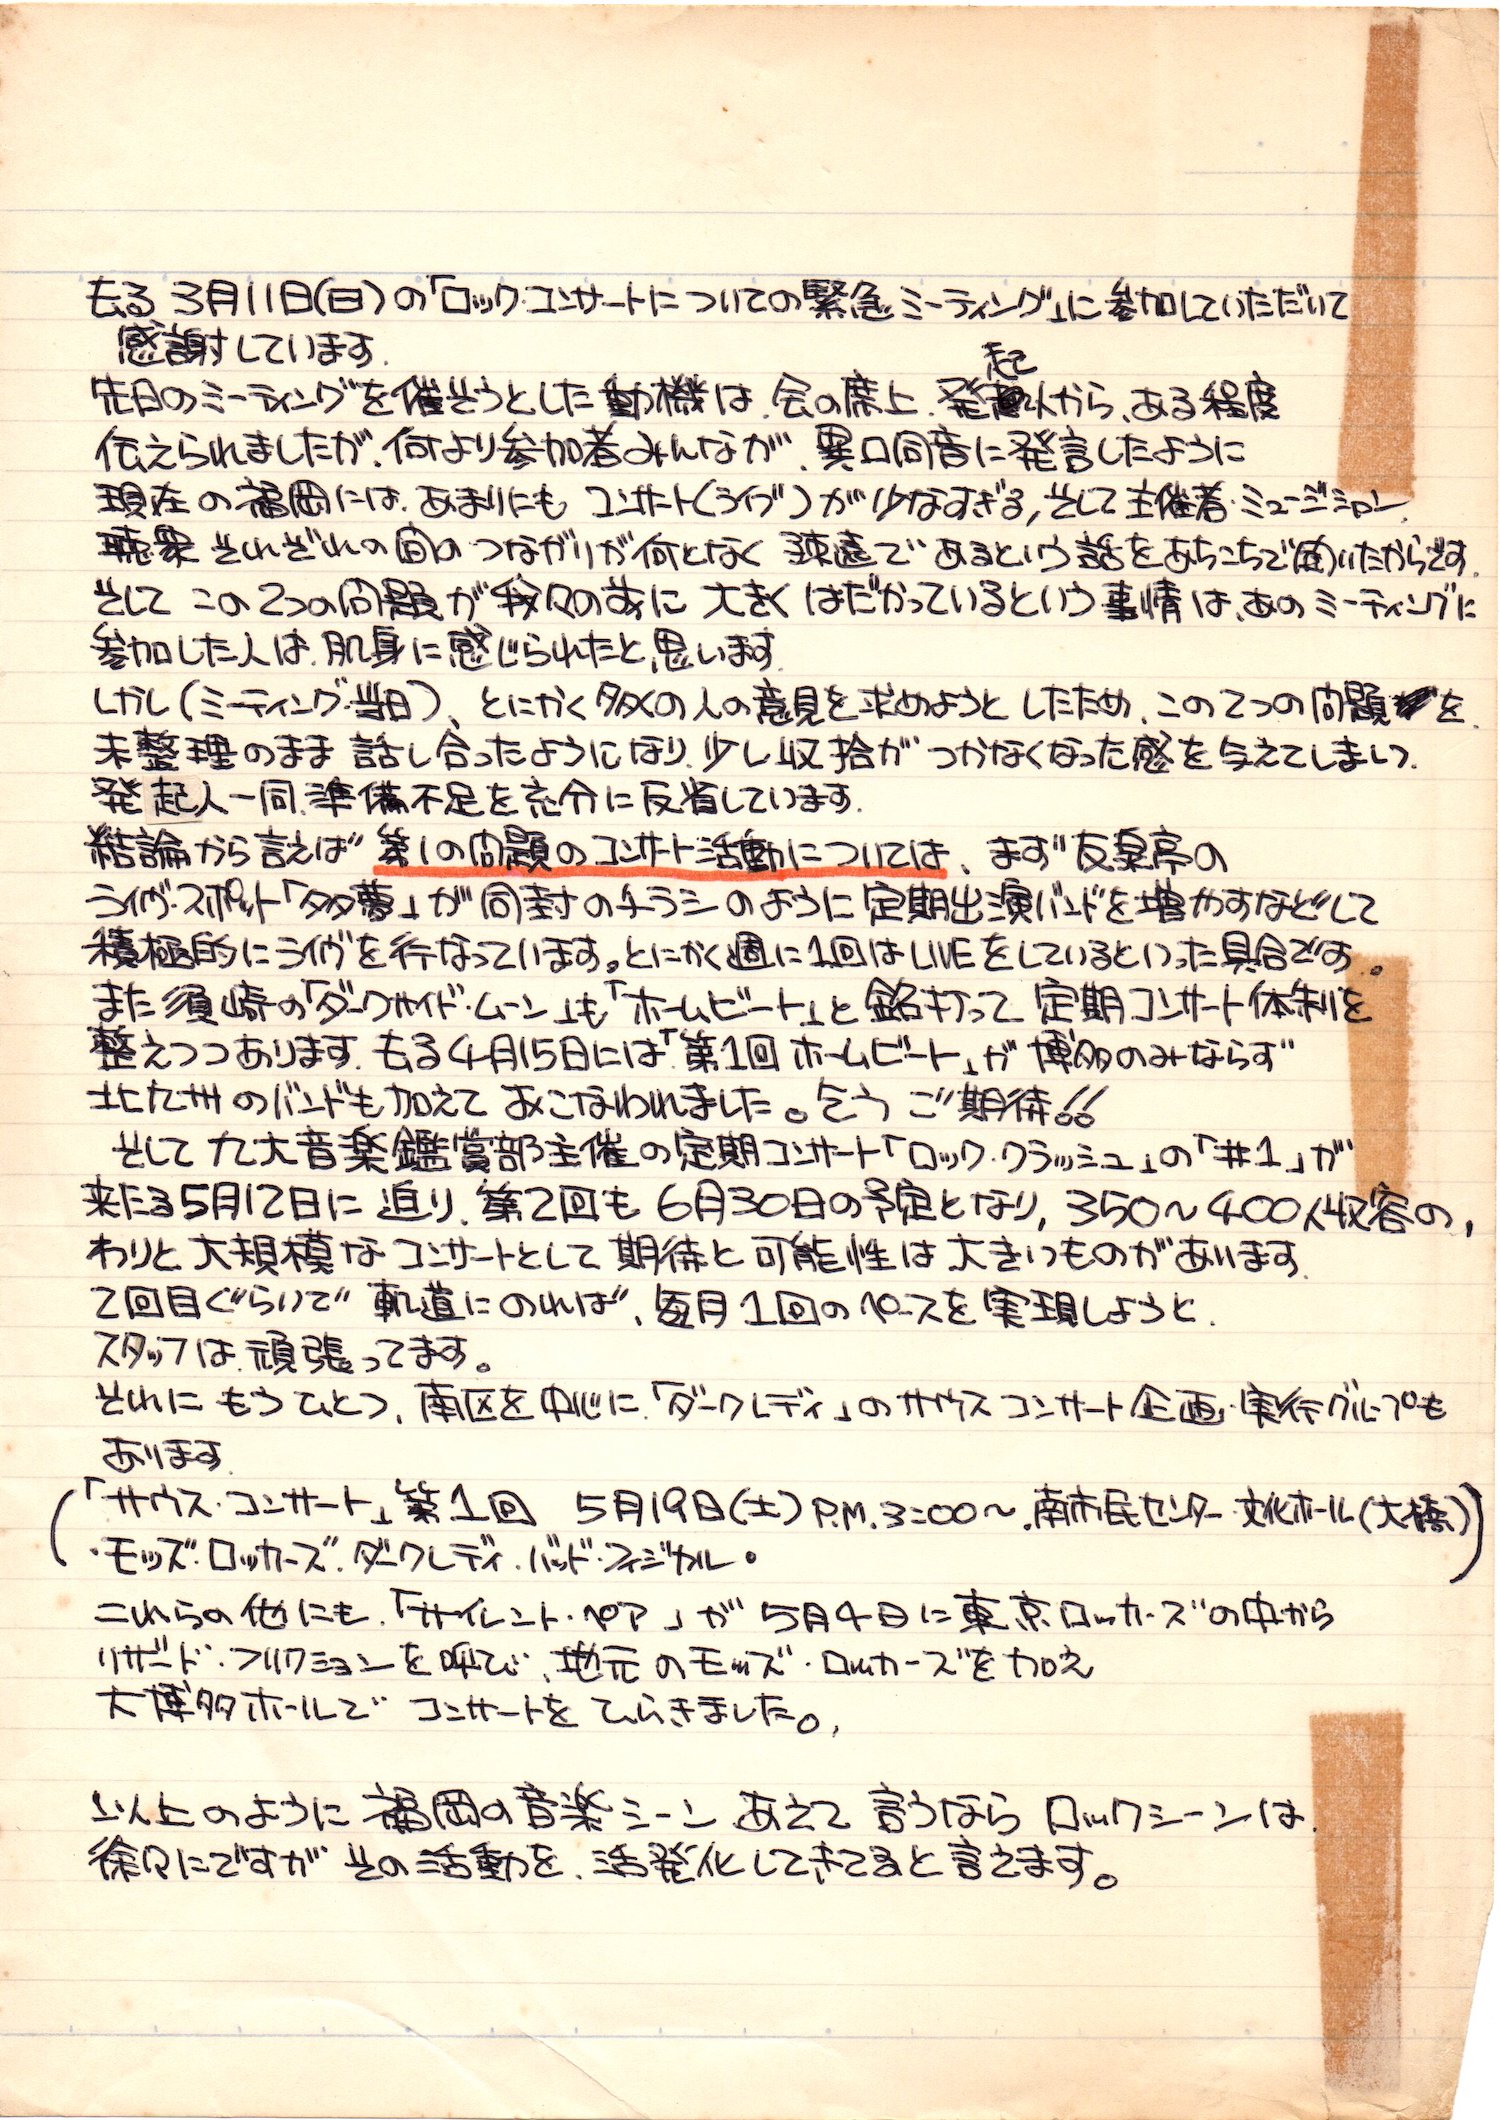 去る 3月11日(日)の「ロック・コンサートについての緊急ミーティング」に参加していただいて
感謝しています.
先日のミーティングを催そうとした動機は、会の席上、発起人から、ある程度
伝えられましたが、何より参加者みんなが、異口同音に発言したように
現在の福岡には、あまりにも コンサート(ライヴ)が少なすぎる, そして主催者・ミュージシャン、
聴衆 それぞれの間のつながりが何となく 疎遠であるという話をあちこちで聞いたからです.
そして この2つの問題が我々の前に 大きく はだかっているという事情は、あのミーティングに
参加した人は、肌身に感じられたと思います.
しかし(ミーティング・当日)、とにかく多くの人の意見を求めようと したため、この2つの問題を、
未整理のまま 話し合ったようになり、少し収拾が つかなくなった感を与えてしまい、
発起人一同、準備不足を充分に反省しています.
結論から言えば 第1の問題のコンサート活動については、まず 友泉亭の
ライヴ・スポット「多夢」が同封のチラシのように定期出演バンドを増やすなどして
積極的にライヴを行なっています。とにかく週に1回はLIVEをしているといった具合です。
また須崎の「ダークサイド・ムーン」も「ホームビート」と銘打って 定期コンサート体制を
整えつつあります. 去る4月15日には「第1回 ホームビート」が 博多のみならず
北九州のバンドも加えて おこなわれました。乞う ご期待!!
そして 九大音楽鑑賞部主催の定期コンサート「ロック・クラッシュ」の「#1」が
来たる5月12日に 迫り、第2回も 6月30日の予定となり, 350〜400人収容の,
わりと大規模な コンサートとして 期待と 可能性は 大きいものがあります.
2回目ぐらいで 軌道にのれば、毎月1回のペースを実現しようと、
スタッフは、頑張ってます。
それに もうひとつ、南区を中心に、「ダークレディ」のサウスコンサート企画・実行グループも
あります.
(「サウス・コンサート」第1回 5月19日(土) P.M.3:00〜.南市民センター・文化ホール(大橋)
・モッズ・ロッカーズ・ダークレディ・バッド・フィジカル。)
これらの他にも、「サイレント・ペア」が 5月4日に東京ロッカーズの中から
リザード・フリクションを呼び、地元のモッズ・ロッカーズを加え
大博多ホールで コンサートを ひらきました。
以上のように 福岡の音楽シーン あえて 言うなら ロックシーンは、
徐々にですが その活動を、活発化してきてると言えます。